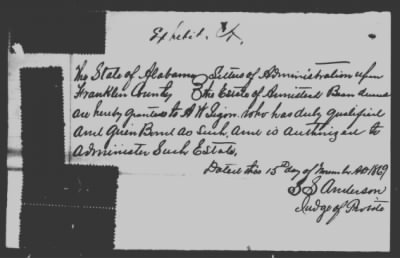 Exhibit. A.
The State of Alabama } Letters of Administration upon
Franklin County } the Estate of Armsted Bean
are hereby granted to A W Ligon. Who has duly qualified
and Given Bond as Such, and is authorized to
administer Such Estate,
Dated this 15th day of AD 1869
Anderson
Judge of Probate